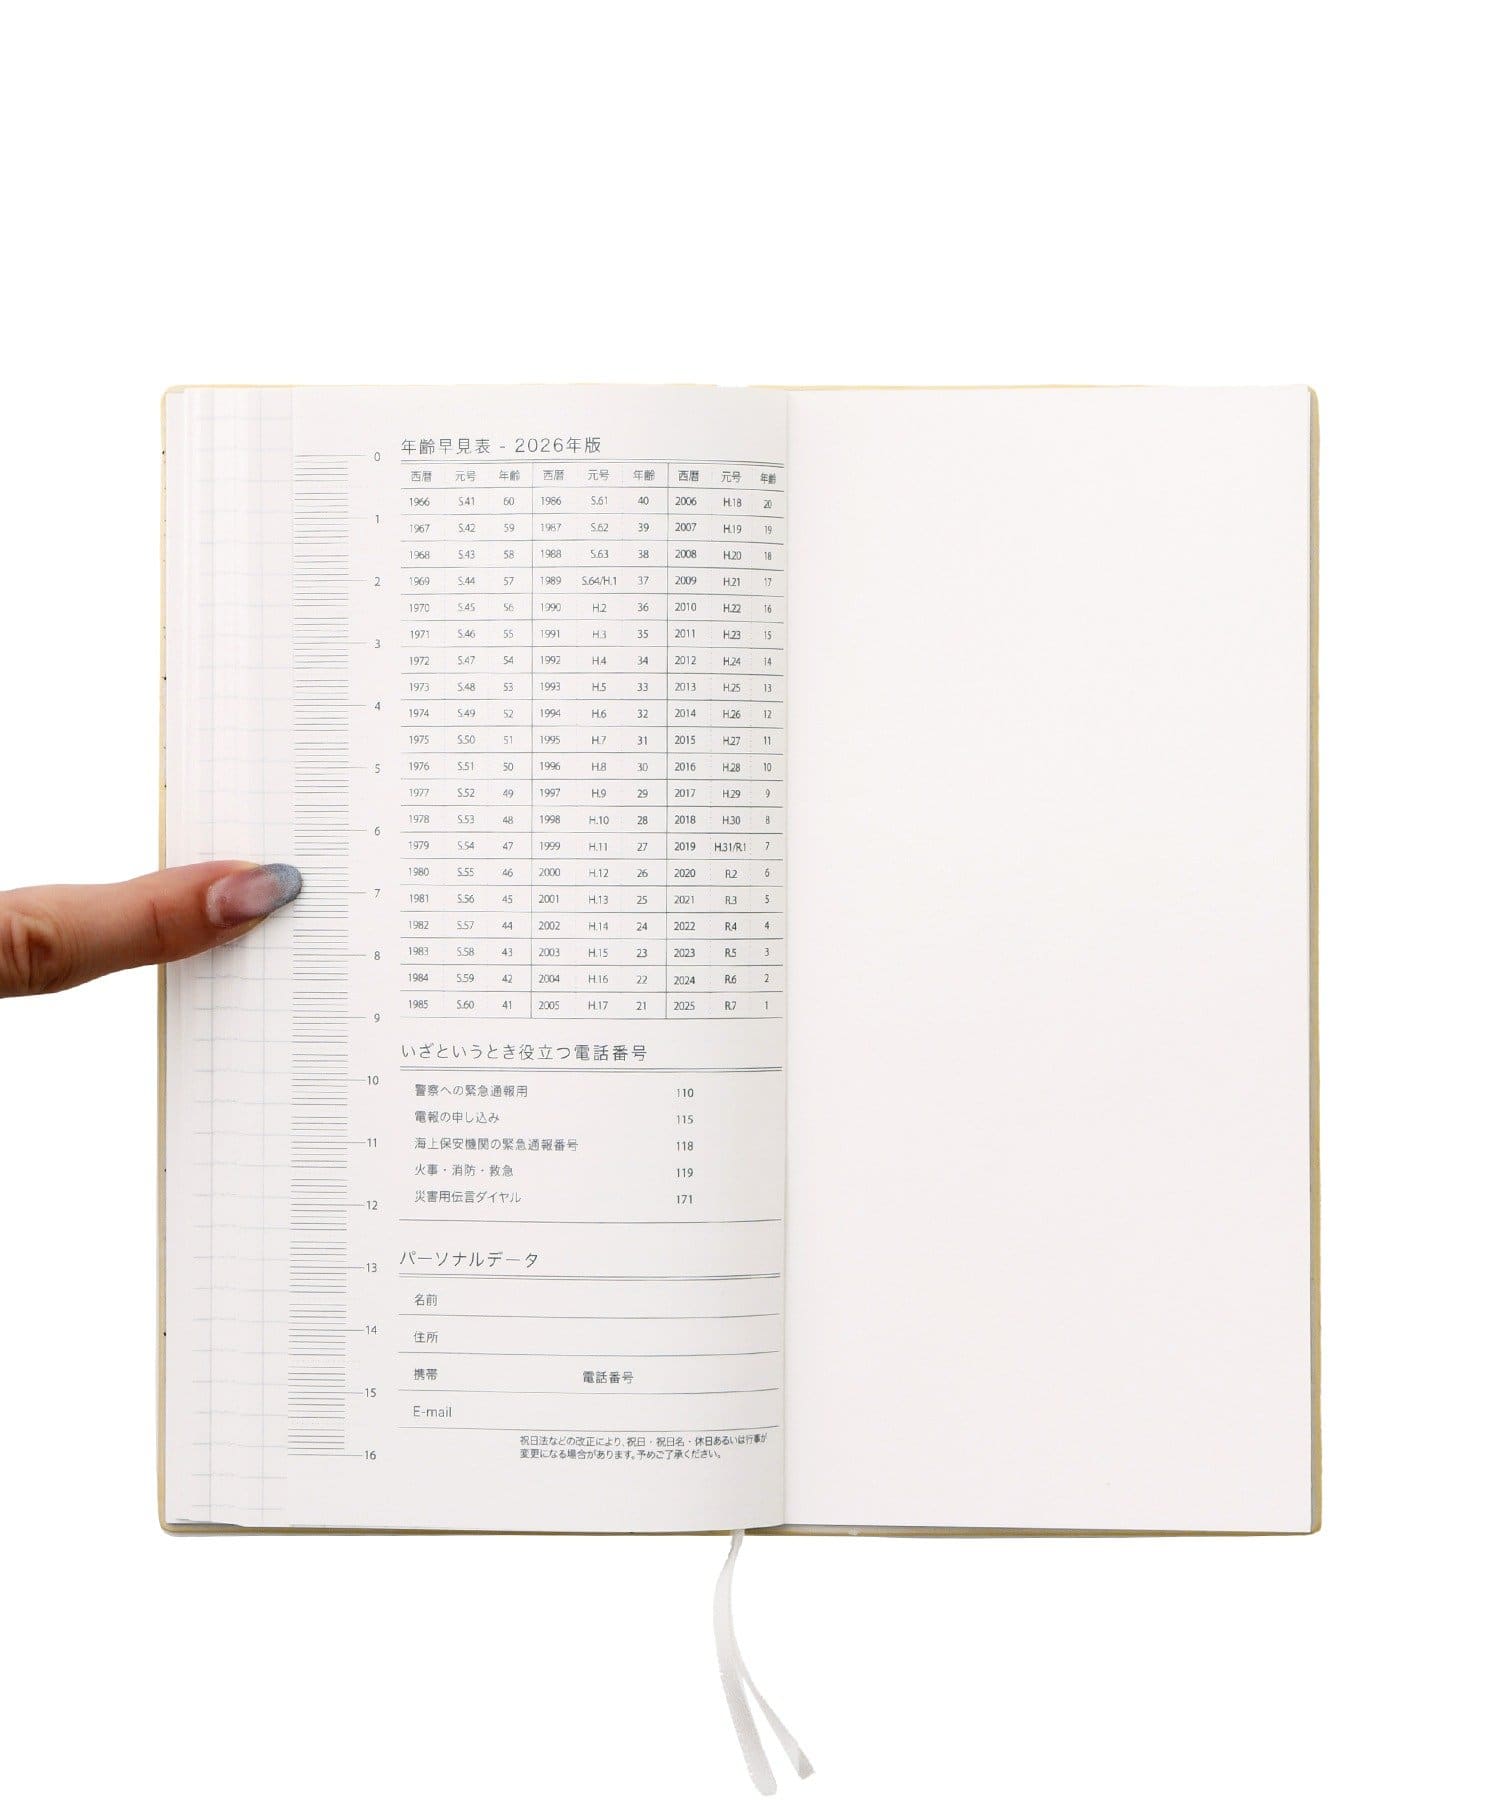 年齢早見表 - 2026年版
西暦 元号 年齢 西暦 元号 年齢 西暦 元号 年齢
1966 S.41 60 1986 S.61 40 2006 H.18 20
1967 S.42 59 1987 S.62 39 2007 H.19 19
1968 S.43 58 1988 S.63 38 2008 H.20 18
1969 S.44 57 1989 S.64/H.1 37 2009 H.21 17
1970 S.45 56 1990 H.2 36 2010 H.22 16
1971 S.46 55 1991 H.3 35 2011 H.23 15
1972 S.47 54 1992 H.4 34 2012 H.24 14
1973 S.48 53 1993 H.5 33 2013 H.25 13
1974 S.49 52 1994 H.6 32 2014 H.26 12
1975 S.50 51 1995 H.7 31 2015 H.27 11
1976 S.51 50 1996 H.8 30 2016 H.28 10
1977 S.52 49 1997 H.9 29 2017 H.29 9
1978 S.53 48 1998 H.10 28 2018 H.30 8
1979 S.54 47 1999 H.11 27 2019 H.31/R.1 7
1980 S.55 46 2000 H.12 26 2020 R.2 6
1981 S.56 45 2001 H.13 25 2021 R.3 5
1982 S.57 44 2002 H.14 24 2022 R.4 4
1983 S.58 43 2003 H.15 23 2023 R.5 3
1984 S.59 42 2004 H.16 22 2024 R.6 2
1985 S.60 41 2005 H.17 21 2025 R.7 1
いざというとき役立つ電話番号
警察への緊急通報用 110
電報の申し込み 115
海上保安機関の緊急通報番号 118
火事・消防・救急 119
災害用伝言ダイヤル 171
パーソナルデータ
名前
住所
携帯 電話番号
E-mail
祝日法などの改正により、祝日・祝日名・休日あるいは行事が
変更になる場合があります。予めご了承ください。
0
1
2
3
4
5
6
7
8
9
10
11
12
13
14
15
16